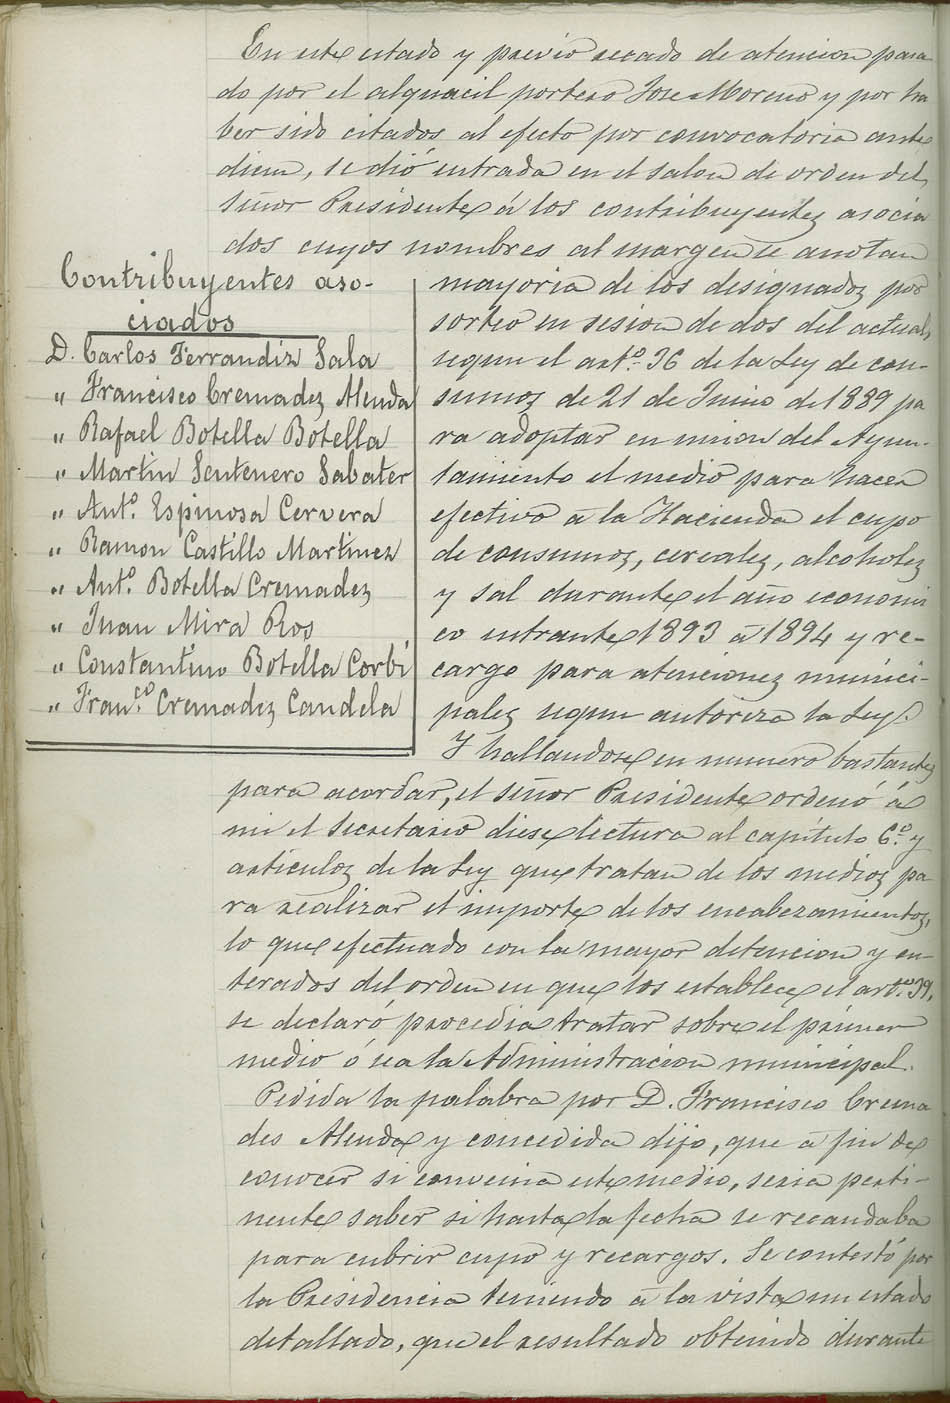 En este estado y previo recado de atencion pasa
do por el alguacil portero Jose Moreno y por ha
ber sido citados al efecto por convocatoria ante
diem, se dió entrada en el salon de orden del
señor Presidente á los contribuyentes asocia
dos cuyos nombres al margen se anotan
Contribuyentes aso-
ciados
D. Carlos Ferrandiz Sala
" Francisco Cremadez Alenda
" Rafael Botella Botella
" Martin Sentenero Sabater
" Antº. Espinosa Cervera
" Ramon Castillo Martinez
" Antº. Botella Cremadez
" Juan Mira Ros
" Constantino Botella Corbí
" Franco. Cremadez Candela
mayoria de los designados por
sorteo en sesion de dos del actual,
segun el artº. 36 de la Ley de con-
sumos de 21 de Junio de 1889 pa
ra adoptar en union del Ayun-
tamiento el medio para hacer
efectivo á la Hacienda el cupo
de consumos, cereales, alcoholes
y sal durante el año economi
co entrante 1893 á 1894 y re-
cargo para atenciones munici-
pales segun autoriza la Ley.
Y hallandose en numero bastante
para acordar, el señor Presidente ordenó á
mi el Secretario diese lectura al capítulo 6º. y
articulos de la Ley que tratan de los medios pa
ra realizar el importe de los encabezamientos,
lo que efectuado con la mayor detencion y en-
terados del orden en que los establece el artº. 39,
se declaró procedia tratar sobre el primer
medio ó sea la Administracion municipal.
Pedida la palabra por D. Francisco Crema
des Alenda y concedida dijo, que á fin de
conocer si convenia este medio, seria perti-
nente saber si hasta la fecha se recaudaba
para cubrir cupo y recargos. Se contestó por
la Presidencia teniendo á la vista un estado
detallado, que el resultado obtenido durante